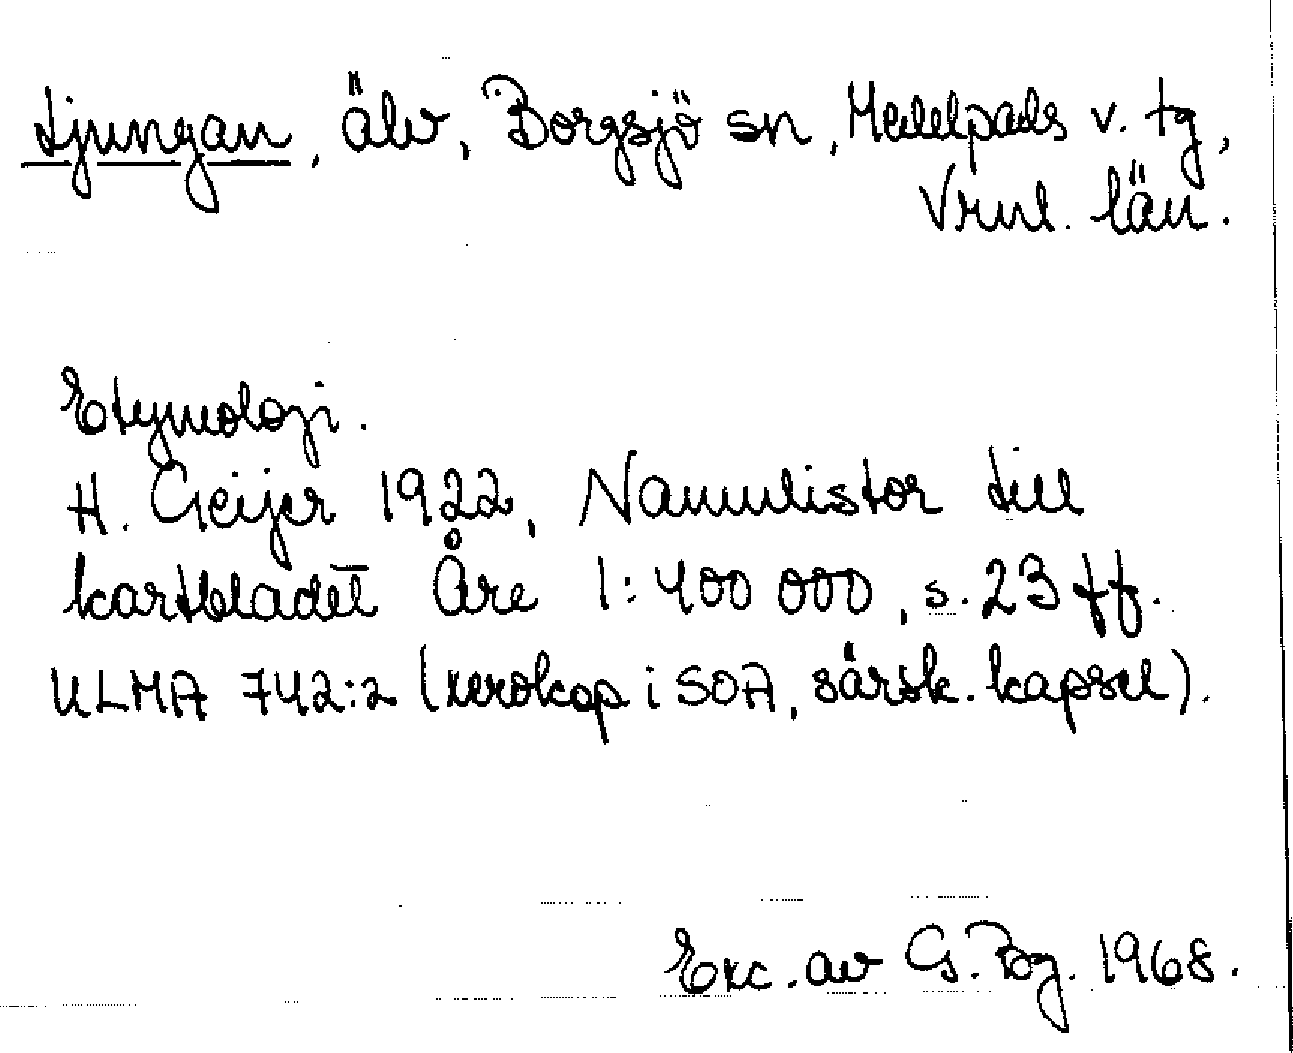 Ljungan, älv, Borgsjö sn, Medelpads v. tg,
Vrnl. län.
Etymologi.
H. Geijer 1922, Namnlistor till
kartbladet Åre 1:400 000, s. 23 ff.
ULMA 742:2 (xerokop i SOA, särsk. kapsel).
Exc. av G. Bg. 1968.